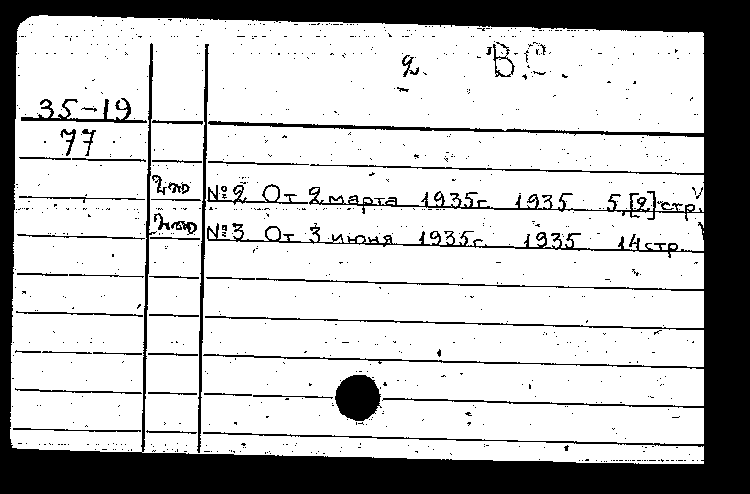 2. В.С.
35-19
77
№2 От 2 марта 1935г. 1935 5,[2] стр.
№3 От 3 июня 1935г. 1935 14 стр.